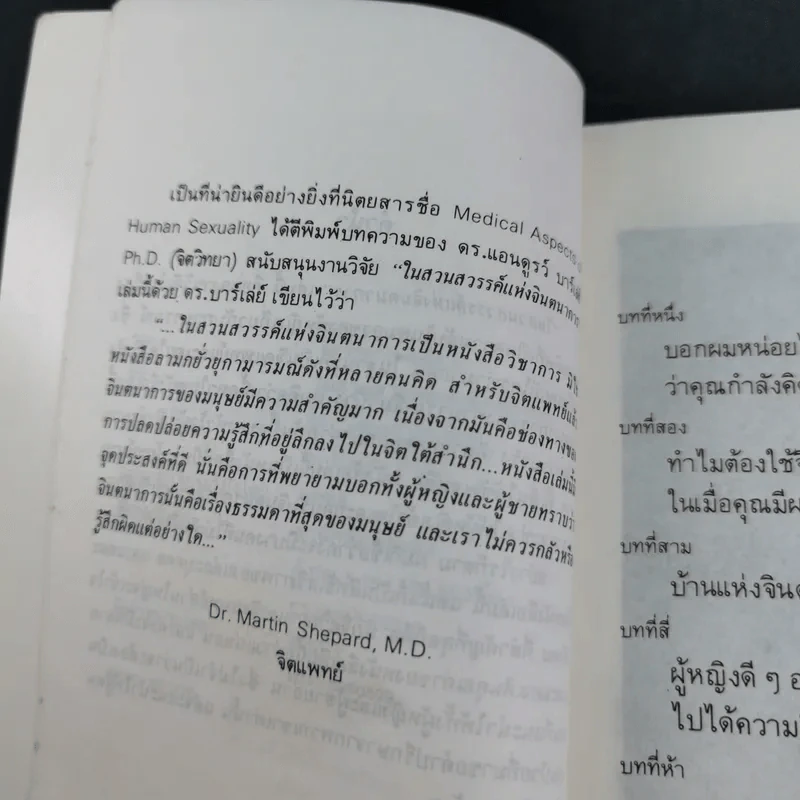 เป็นที่น่ายินดีอย่างยิ่งที่นิตยสารชื่อ Medical Aspects
Human Sexuality ได้ตีพิมพ์บทความของ ดร.แอนดูรว์
Ph.D. (จิตวิทยา) สนับสนุนงานวิจัย “ในสวนสวรรค์แห่งจินตนาการ
เล่มนี้ด้วย ดร.บาร์เล่ย์ เขียนไว้ว่า
“...ในสวนสวรรค์แห่งจินตนาการเป็นหนังสือวิชาการ
หนังสือลามกยั่วยุกามารมณ์ดังที่หลายคนคิด สำหรับจิตแพทย์แล้ว
จินตนาการของมนุษย์มีความสำคัญมาก เนื่องจากมันคือช่องทางของ
การปลดปล่อยความรู้สึกที่อยู่ลึกลงไปในจิตใต้สำนึก...หนังสือเล่มนี้
จุดประสงค์ที่ดี นั่นคือการที่พยายามบอกทั้งผู้หญิงและผู้ชายทราบว่า
จินตนาการนั้นคือเรื่องธรรมดาที่สุดของมนุษย์ และเราไม่ควรกลัวหรือ
รู้สึกผิดแต่อย่างใด...”
Dr. Martin Shepard, M.D.
จิตแพทย์
บทที่หนึ่ง
บอกผมหน่อย
ว่าคุณกำลังคิด
บทที่สอง
ทำไมต้องใช้
ในเมื่อคุณมี
บทที่สาม
บ้านแห่ง
บทที่สี่
ผู้หญิงดี ๆ
ไปได้ความ
บทที่ห้า